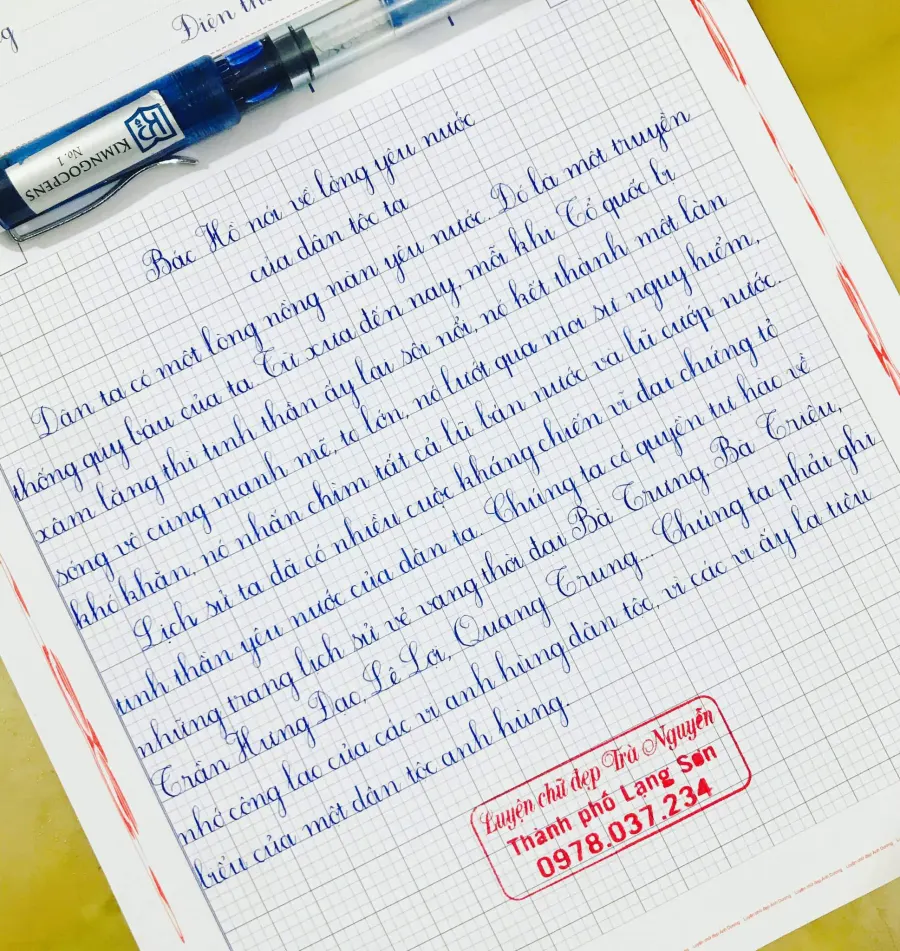 Điện th
KIMNGOCPENS
No.1
Bác Hồ nói về lòng yêu nước
của dân tộc ta
Dân ta có một lòng nồng nàn yêu nước. Đó là một truyền
thống quý báu của ta. Từ xưa đến nay, mỗi khi Tổ quốc bị
xâm lăng thì tinh thần ấy lại sôi nổi, nó kết thành một làn
sóng vô cùng mạnh mẽ, to lớn, nó lướt qua mọi sự nguy hiểm,
khó khăn, nó nhấn chìm tất cả lũ bán nước và lũ cướp nước.
Lịch sử ta đã có nhiều cuộc kháng chiến vĩ đại chứng tỏ
tinh thần yêu nước của dân ta. Chúng ta có quyền tự hào về
những trang lịch sử vẻ vang thời đại Bà Trưng, Bà Triệu,
Trần Hưng Đạo, Lê Lợi, Quang Trung... Chúng ta phải ghi
nhớ công lao của các vị anh hùng dân tộc, vì các vị ấy là tiêu
biểu của một dân tộc anh hùng.
Luyện chữ đẹp Trà Nguyễn
Thành phố Lạng Sơn
0978.037.234